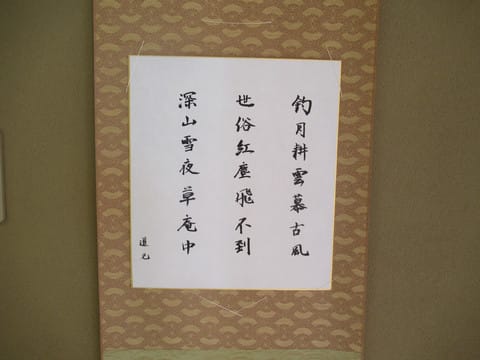 釣月耕雲慕古風
世俗紅塵飛不到
深山雪夜草庵中
道元